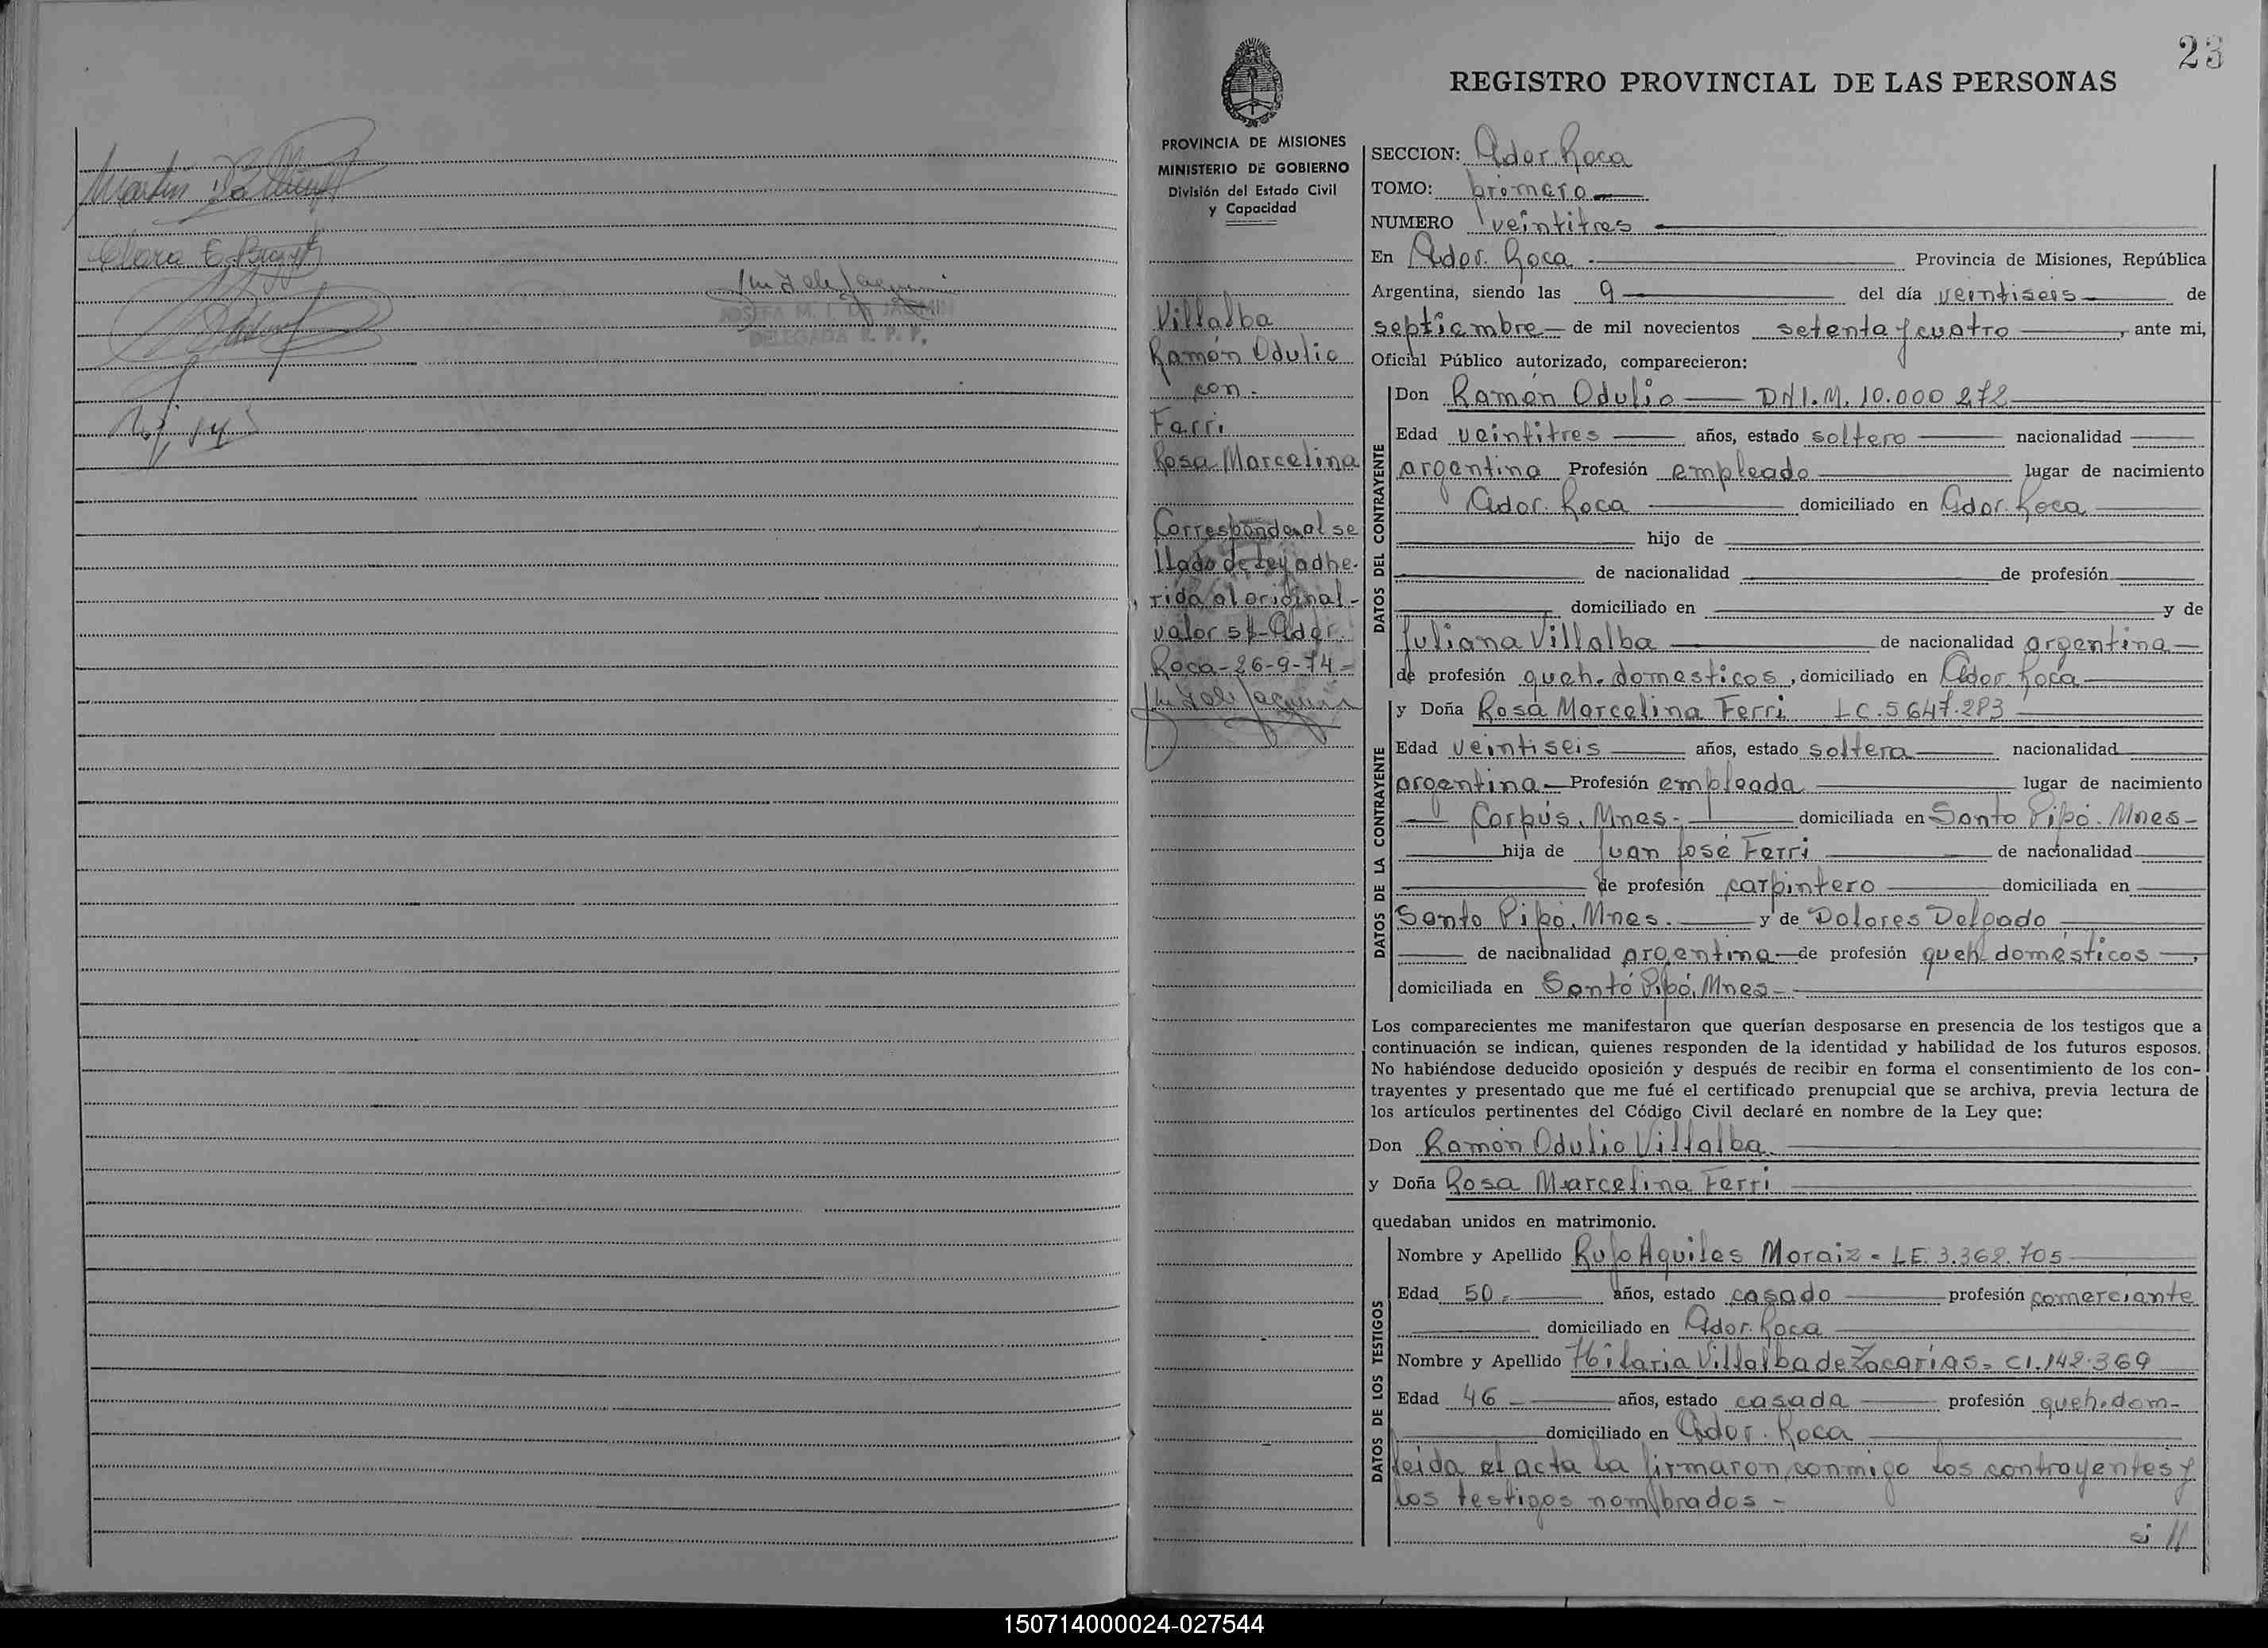 Clara E.
JOSEFA M. I. DE JACMIN
DELEGADA R. P. P.
23
REGISTRO PROVINCIAL DE LAS PERSONAS
PROVINCIA DE MISIONES
MINISTERIO DE GOBIERNO
División del Estado Civil
y Capacidad
Villalba
Ramón Odulio
con.
Farri
Rosa Marcelina
Corresponde al se
llado de ley adhe-
rida al original-
valor $1- Gdor.
Roca-26-9-74-
SECCION: Gdor. Roca
TOMO: primero
NUMERO veintitres
En Gdor. Roca. Provincia de Misiones, República
Argentina, siendo las 9 del día veintiseis de
septiembre de mil novecientos setenta y cuatro, ante mi,
Oficial Público autorizado, comparecieron:
DATOS DEL CONTRAYENTE
Don Ramón Odulio DNI.M. 10.000 272
Edad veintitres años, estado soltero nacionalidad
argentina Profesión empleado lugar de nacimiento
Gdor. Roca domiciliado en Gdor. Roca
hijo de
de nacionalidad de profesión
domiciliado en y de
Juliana Villalba de nacionalidad argentina
de profesión queh. domesticos, domiciliado en Gdor. Roca
DATOS DE LA CONTRAYENTE
y Doña Rosa Marcelina Ferri LC. 5647.283
Edad veintiseis años, estado soltera nacionalidad
argentina Profesión empleada lugar de nacimiento
Corpus. Mnes- domiciliada en Santo Pipó. Mnes-
hija de Juan José Ferri de nacionalidad
de profesión carpintero domiciliada en
Santo Pipó. Mnes. y de Dolores Delgado
de nacionalidad argentina de profesión queh domésticos,
domiciliada en Santo Pipó, Mnes-
Los comparecientes me manifestaron que querían desposarse en presencia de los testigos que a
continuación se indican, quienes responden de la identidad y habilidad de los futuros esposos.
No habiéndose deducido oposición y después de recibir en forma el consentimiento de los con-
trayentes y presentado que me fué el certificado prenupcial que se archiva, previa lectura de
los artículos pertinentes del Código Civil declaré en nombre de la Ley que:
Don Ramón Odulio Villalba
y Doña Rosa Marcelina Ferri
quedaban unidos en matrimonio.
DATOS DE LOS TESTIGOS
Nombre y Apellido Rufo Aquiles Moraiz - LE. 3.362.705
Edad 50 años, estado casado profesión comerciante
domiciliado en Gdor. Roca
Nombre y Apellido Hilaria Villalba de Zacarías- CI. 142.369
Edad 46 años, estado casada profesión queh. dom-
domiciliado en Gdor. Roca
leida el acta la firmaron conmigo los contrayentes y
los testigos nombrados -
150714000024-027544